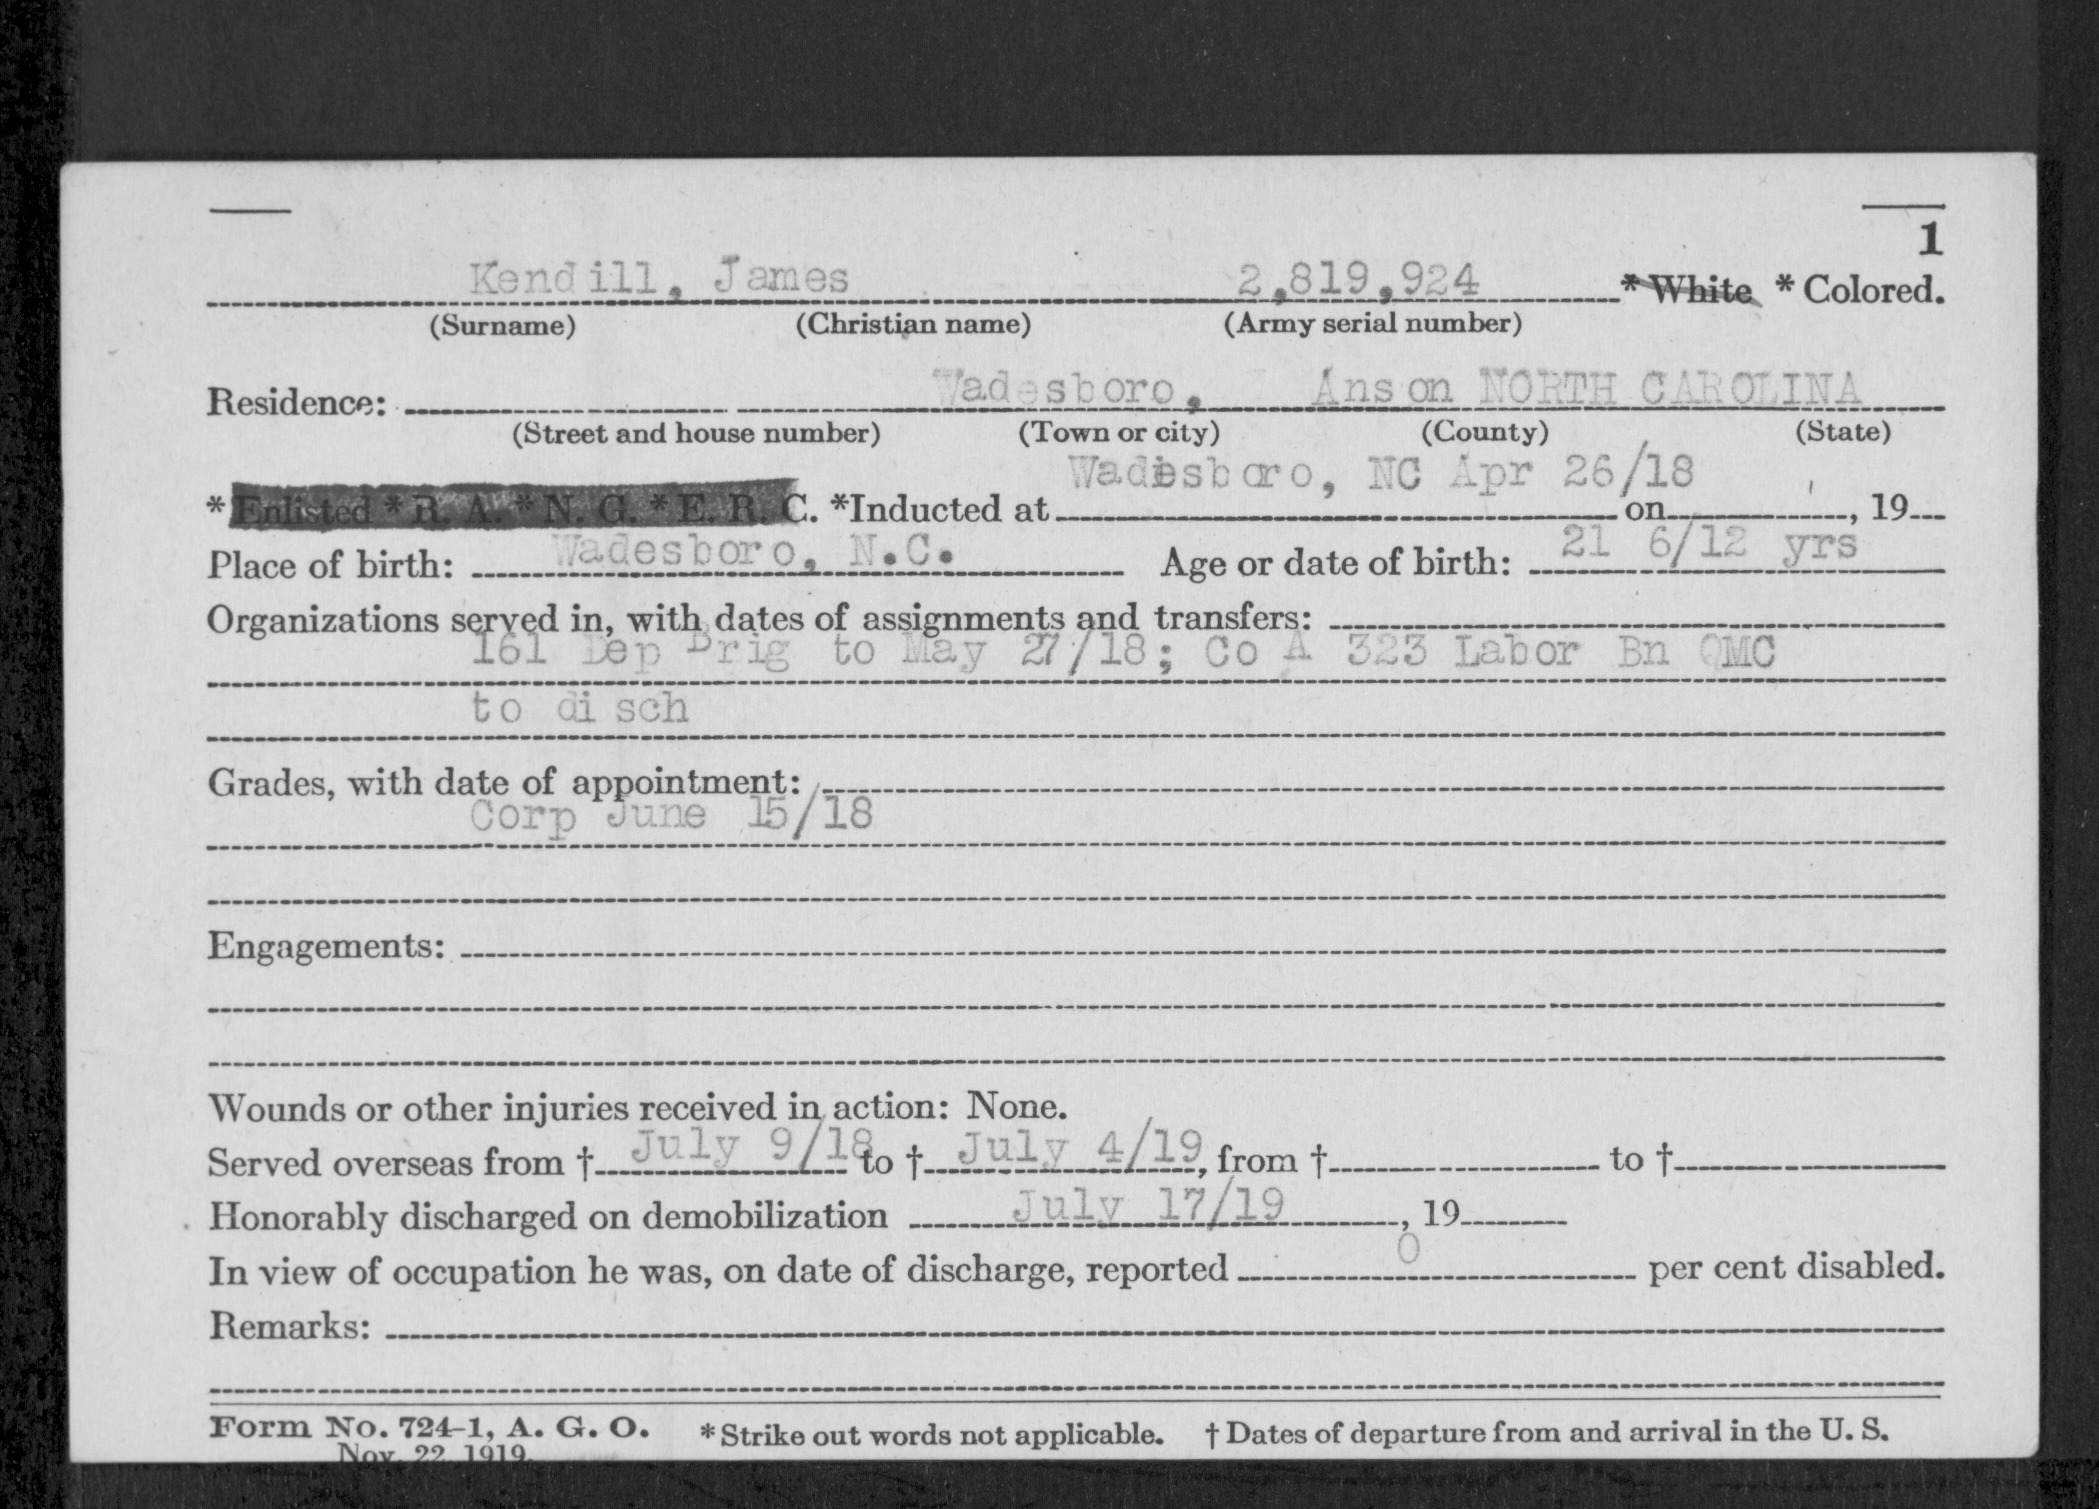 1
Kendill, James 2,819,924 * White * Colored.
(Surname) (Christian name) (Army serial number)
Residence: Wadesboro, Anson NORTH CAROLINA
(Street and house number) (Town or city) (County) (State)
Wadesboro, NC Apr 26/18
* Enlisted * R. A. * N. G. * E. R. C. *Inducted at on , 19
Place of birth: Wadesboro, N.C. Age or date of birth: 21 6/12 yrs
Organizations served in, with dates of assignments and transfers:
161 Dep Brig to May 27/18; Co A 323 Labor Bn QMC
to disch
Grades, with date of appointment:
Corp June 15/18
Engagements:
Wounds or other injuries received in action: None.
Served overseas from † July 9/18 to † July 4/19, from † to †
Honorably discharged on demobilization July 17/19, 19
In view of occupation he was, on date of discharge, reported 0 per cent disabled.
Remarks:
Form No. 724-1, A. G. O. * Strike out words not applicable. † Dates of departure from and arrival in the U. S.
Nov. 22, 1919.